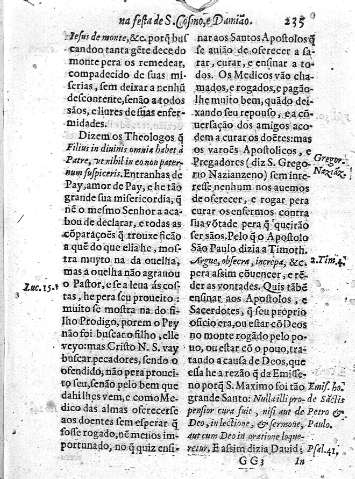 na festa de S. Cosmo, e Damião. 235
Iesus de monte, &c. porq̃ bus
cando o tanta gẽte dece do
monte pera os remedear,
compadecido de suas mi-
serias, sem deixar a nenhũ
descontente, senão a todos
sãos, e liures de suas enfer-
midades.
Dizem os Theologos q̃
Filius in diuinis omnia habet à
Patre, vt nihil in eo non pater-
num suspiceris. Entranhas de
Pay, amor de Pay, e he tão
grande sua misericordia, q̃
nẽ o mesmo Senhor a aca-
bou de declarar, e todas as
cõparações q̃ trouxe ficão
a quẽ do que ella he, mos-
tra muyto na da ouelha,
mas a ouelha não agrauou
o Pastor, e se a leua às cos-
tas, he pera seu proueito:
muito se mostra na do fi-
lho Prodigo, porem o Pay
não foi buscar o filho, elle
veyo: mas Cristo N. S. vay
buscar peccadores, sendo o
ofendido, não pera prouei-
to seu, senão pelo bem que
dahi lhes vem, e como Me-
dico das almas oferecerse
aos doentes sem esperar q̃
fosse rogado, nẽ menos im-
portunado, no q̃ quiz ensi-
Luc. 15.
nar aos Santos Apostolos q̃
se auião de oferecer a sa-
rar, curar, e ensinar a to-
dos. Os Medicos vão cha-
mados, e rogados, e pagão-
lhe muito bem, quãdo dei-
xando seu repouso, e a cõ-
uersação dos amigos aco-
dem a curar os doẽtes: mas
os varoẽs Apostolicos, e
Pregadores (diz S. Grego-
rio Nazianzeno) sem inte-
resse nenhum nos auemos
de oferecer, e rogar pera
curar os enfermos contra
sua võtade pera q̃ queirão
ser sãos. Pelo q̃ o Apostolo
São Paulo dizia a Timoth.
Argue, obsecra, increpa, &c.
pera assim cõuencer, e rẽ-
der as vontades. Quis tãbẽ
ensinar aos Apostolos, e
Sacerdotes, q̃ seu proprio
oficio era, ou estar cõ Deos
no monte rogãdo pelo po-
uo, ou estar cõ o pouo, tra-
tando a causa de Deos, que
essa he a rezão q̃ da Emisse-
no porq̃ S. Maximo foi tão
grande Santo: Nulla illi pro-
pensior cura fuit, nisi aut de
Deo, in lectione, & sermone,
aut cum Deo in oratione loque-
retur. E assim dizia Dauid:
Gregor.
Naziãz.
2. Tim. 4.
Emis. ho.
de Sãctis
Petro &
Paulo.
Psal. 41.
GG3 In